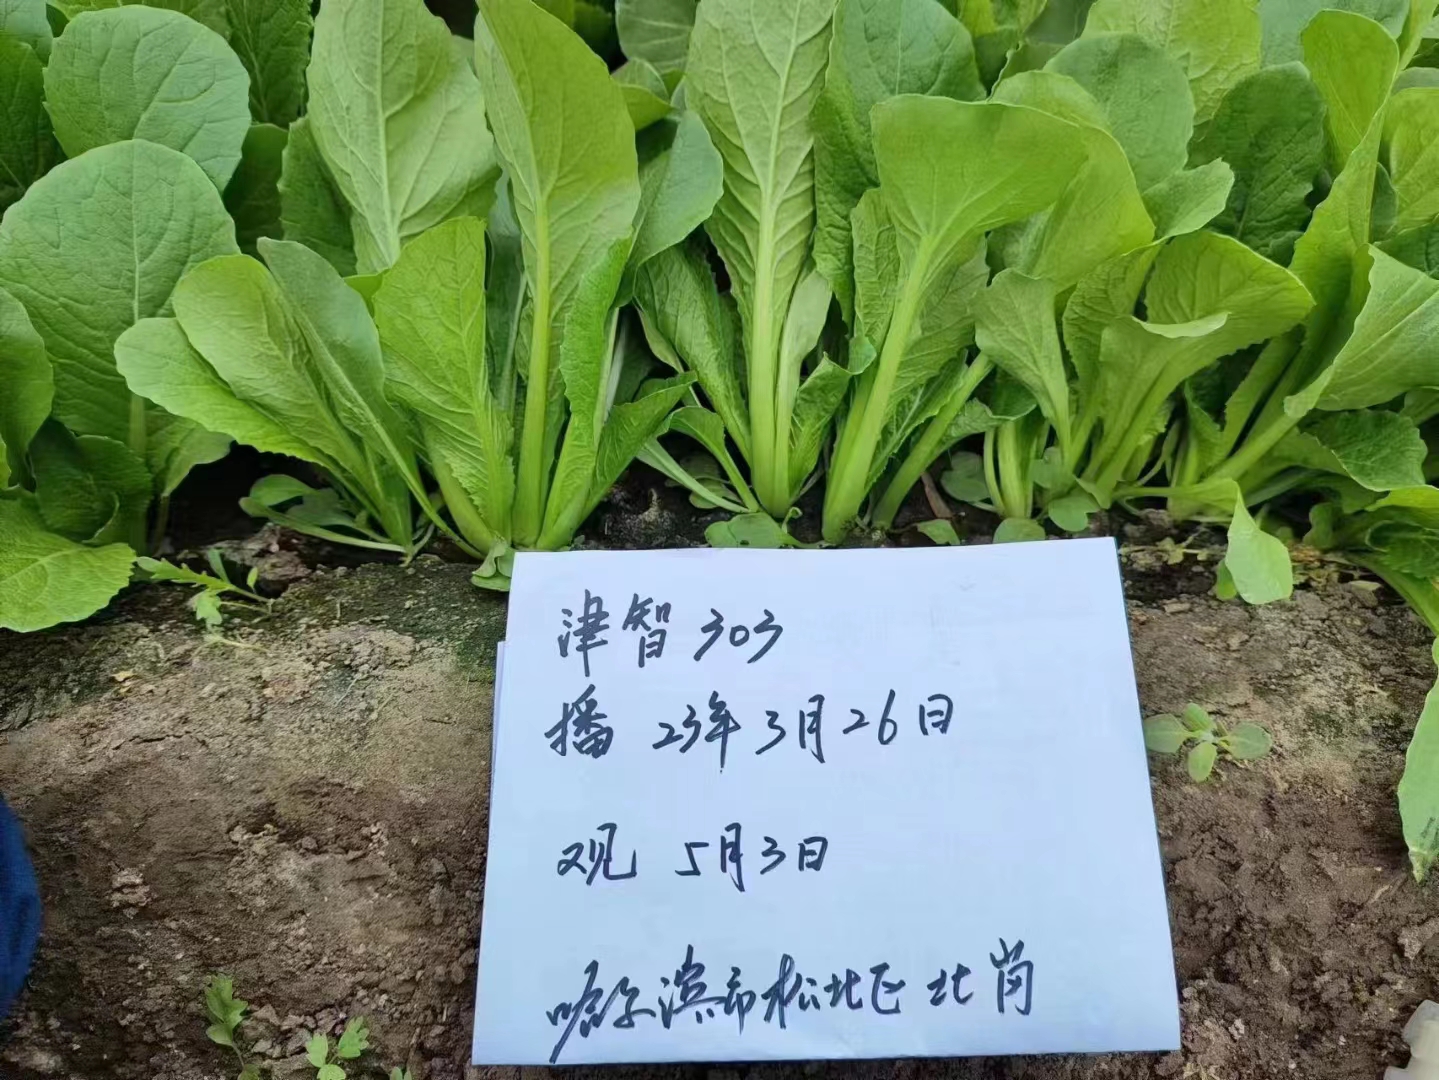 津智303
播 23年3月26日
观 5月3日
哈尔滨市松北区北岗